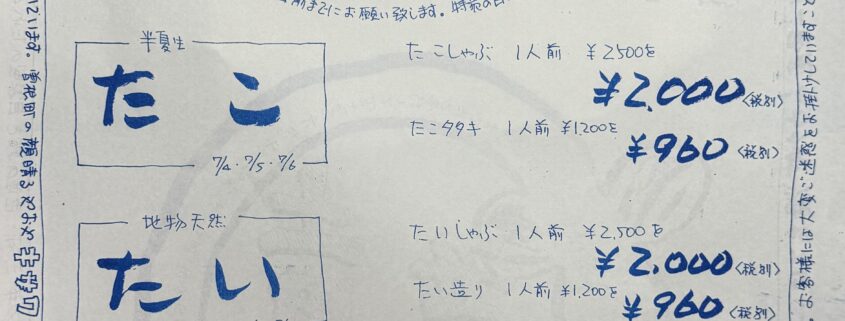 前までにお願い致します。
半夏生
たこ
7/4・7/5・7/6
たこしゃぶ 1人前 ¥2500を
¥2,000〈税別〉
たこタタキ 1人前 ¥1,200を
¥960〈税別〉
地物天然
たい
たいしゃぶ 1人前 ¥2,500を
¥2,000〈税別〉
たい造り 1人前 ¥1,200を
¥960〈税別〉
ています。曽根町の頑晴るやおや
お客様には大変ご迷惑をお掛けしています